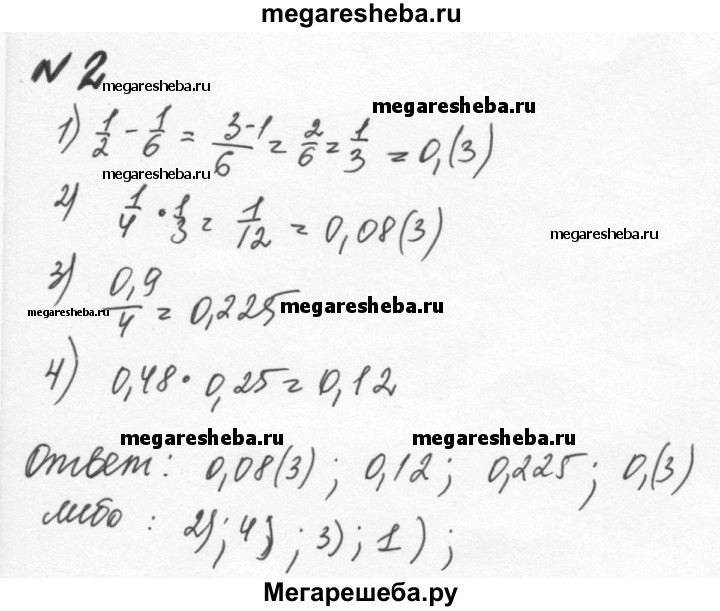 megaresheba.ru
№ 2
megaresheba.ru
megaresheba.ru
1) 1/2 - 1/6 = 3-1/6 = 2/6 = 1/3 = 0,(3)
2) 1/4 · 1/3 = 1/12 = 0,08(3)
megaresheba.ru
3) 0,9/4 = 0,225
megaresheba.ru
megaresheba.ru
4) 0,48 · 0,25 = 0,12
megaresheba.ru
megaresheba.ru
Ответ: 0,08(3); 0,12; 0,225; 0,(3)
либо: 2); 4); 3); 1);
Мегарешеба.ру